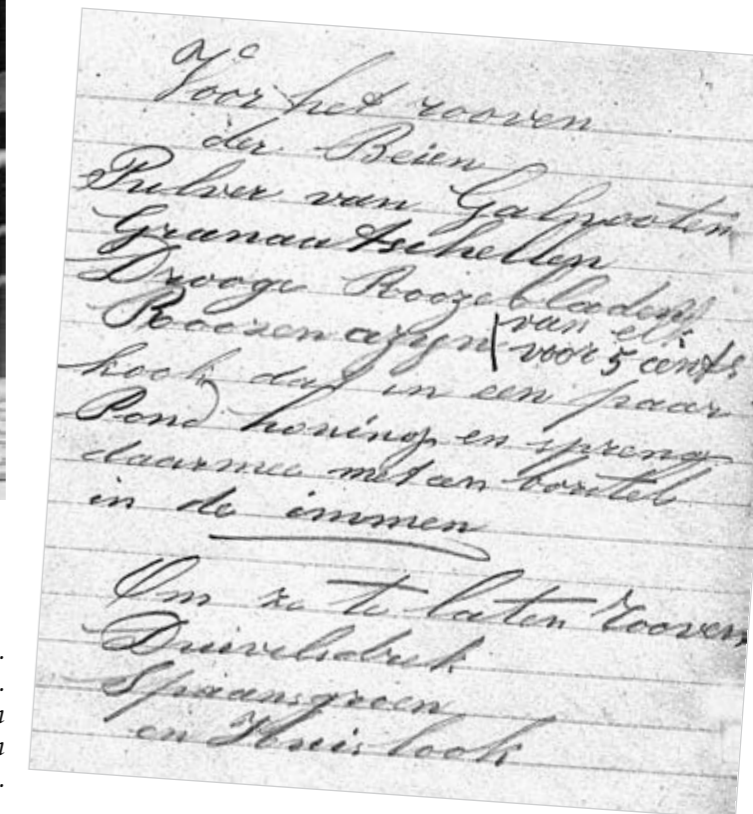 Voor het rooven
der Beien
Pulver van Galnooten
Granaatschellen
Drooge Roozebladen
Roozen azyn van elk
voor 5 cents
kook dat in een paar
Pond honing en spreng
daarmee met en borstel
in de immen
Om ze te laten rooven
Duivelsdrek
Spaansgroen
en Huislook